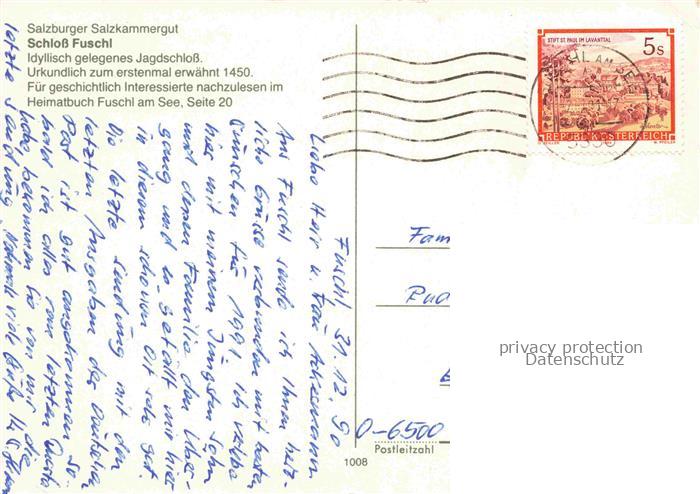 Salzburger Salzkammergut
Schloß Fuschl
Idyllisch gelegenes Jagdschloß.
Urkundlich zum erstenmal erwähnt 1450.
Für geschichtlich Interessierte nachzulesen im
Heimatbuch Fuschl am See, Seite 20
STIFT ST. PAUL IM LAVANTTAL
5s
REPUBLIK ÖSTERREICH
Fuschl 31.12.90
Liebe Herr u. Frau
Aus Fuschl sende ich Ihnen herz-
liche Grüsse verbunden mit besten
Wünschen für 1991. Ich verlebe
hier mit meinem jüngsten Sohn
und deren Familie den Über-
gang und es gefällt mir hier
in diesem schönen Ort sehr gut.
Die letzte Sendung mit den
letzten Ausgaben der Deutschen
Post ist gut angekommen. So-
bald ich alles vom letzten
habe, bekommen Sie von mir die
letzte Sendung. viele Grüße
Fam
D-6500
Postleitzahl
1008
privacy protection
Datenschutz